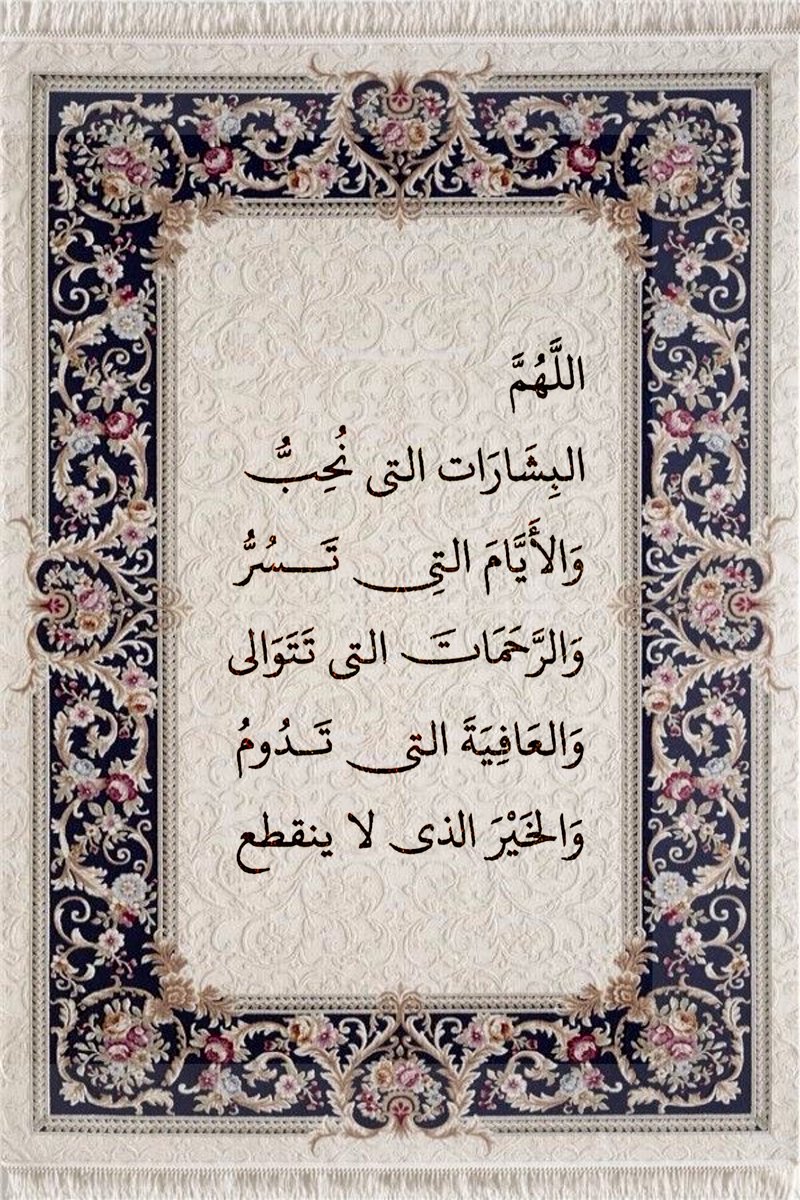 اللَّهُمَّ
البِشَارَات التى نُحِبُّ
وَالأَيَّامَ التِى تَسُرُّ
وَالرَّحَمَاتَ التى تَتَوَالى
وَالعَافِيَةَ التى تَدُومُ
وَالخَيْرَ الذى لا ينقطع